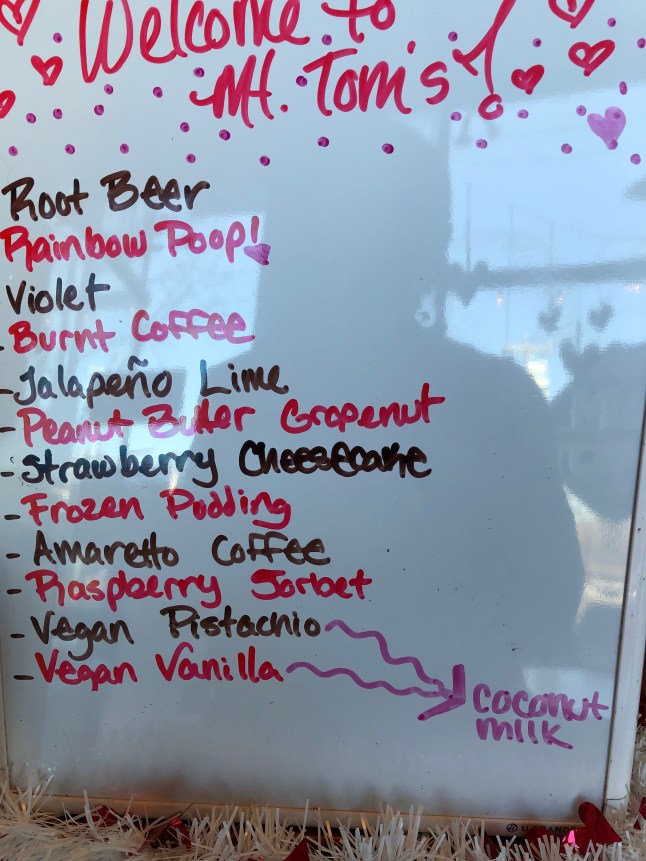 Welcome to
Mt. Tom's!
Root Beer
Rainbow Poop!
Violet
- Burnt Coffee
- Jalapeño Lime
- Peanut Butter Grapenut
- Strawberry Cheesecake
- Frozen Pudding
- Amaretto Coffee
- Raspberry Sorbet
- Vegan Pistachio
- Vegan Vanilla
coconut
milk